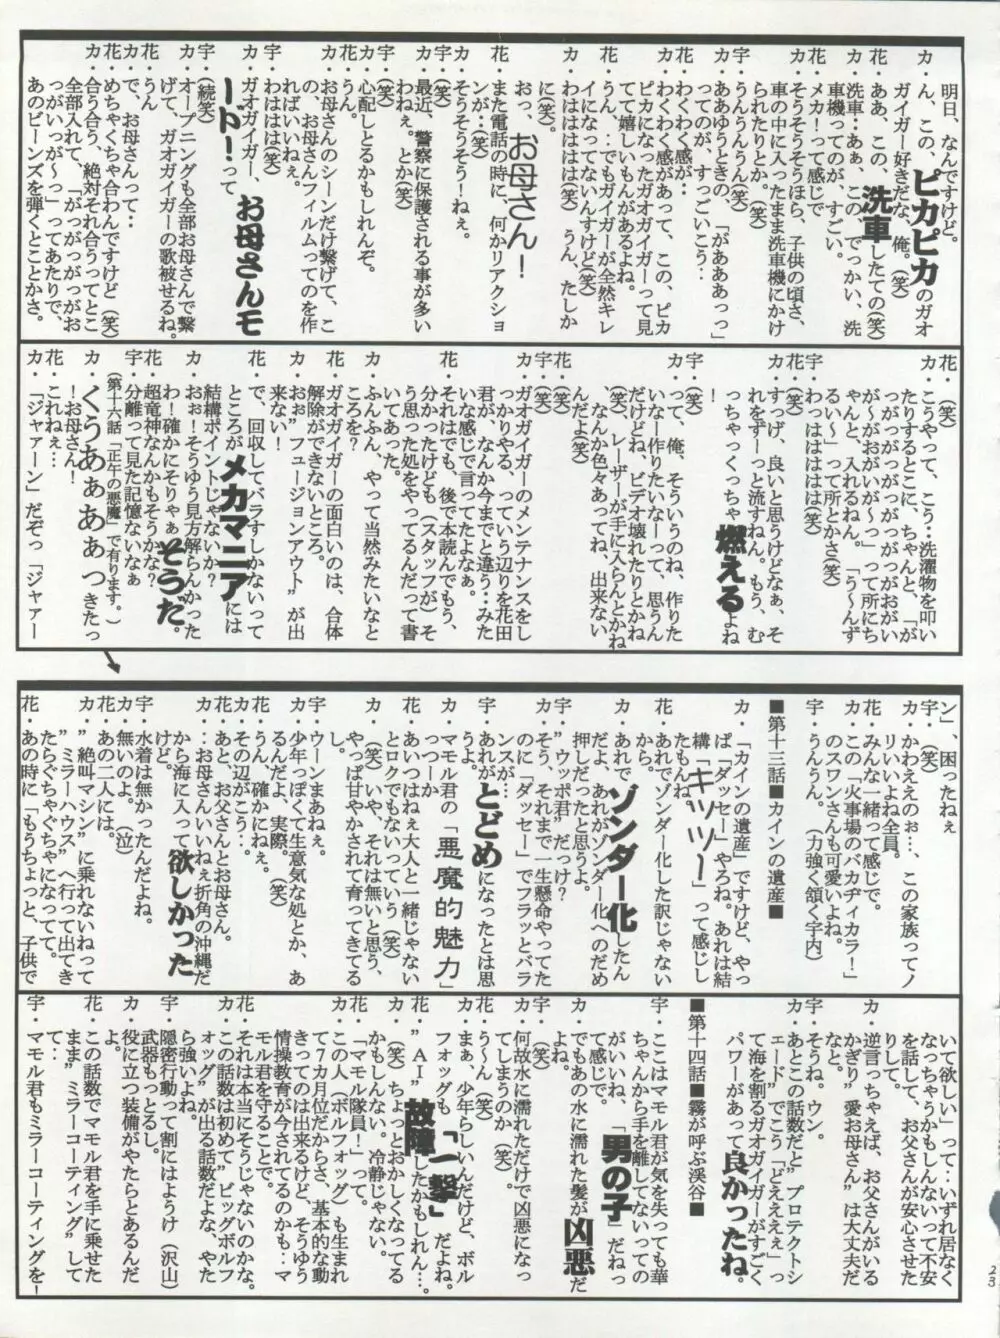 カ・ん、この、ピカピカのガオ
ガイガー好きだな、俺。(笑)
明日、なんですけど。
花・ああ、この、洗車したての(笑)
カ・洗車‥あぁ、この、でっかい、洗
車機ってのが、すごい。
花・メカ！って感じで
カ・そうそうそうほら、子供の頃さ、
車の中に入ったまま洗車機にかけ
られたりとか。(笑)
宇・うんうんうん(笑)
カ・ああゆうときの、「がああああっっ」
ってのが、すっごいこう‥
花・わくわく感が‥
カ・わくわく感があって、この、ピカ
ピカになったガオガイガーって見
てて嬉しいもんがあるよね。
花・うん。‥でもガイガーが全然キレ
イになってないんすけど(笑)
カ・わはははは(笑) うん、たしか
に(笑)。
おっ、お母さん！
花・また電話の時に、何かリアクショ
ンが‥(笑)
カ・そうそうそう！ねぇ。
宇・(笑)
カ・最近、警察に保護される事が多い
わねぇ。とか(笑)
宇・(笑)
カ・心配しとるかもしれんぞ。
花・うん。
カ・お母さんのシーンだけ繋げて、こ
の、お母さんフィルムってのを作
ればいいねぇ。
宇・わははは(笑)
カ・ガオガイガー、お母さんモ
ード！って
宇・(続笑)
カ・オープニングも全部お母さんで繋
げて、ガオガイガーの歌被せるね。
花・うん
カ・で、お母さんって‥
花・めちゃくちゃ合わんですけど(笑)
カ・合う合う、絶対それ合うってとこ
全部入れて、「がっがっがっがお
っがいっが～っ」ってあたりで、
あのビーンズを弾くとことかさ。
花・(笑)
カ・こうやって、こう‥洗濯物を叩い
たりするとこに、ちゃんと、「が
っがっがっがっがっがっがおがい
が～がおがいが～っ」って所にち
ゃんと、入れるねん。「う～んず
るい～」って所とかさ(笑)
宇・わっはははははは(笑)
花・(笑)
カ・すっげ、良いと思うけどなぁ、そ
れをずーっと流すねん。もう、む
っちゃっくっちゃ燃えるよね
！
宇・(笑)
カ・って、俺、そういうのね、作りた
いなー作りたいなーって、思うん
だけどね、ビデオ壊れたりとかね
(笑)、レーザーが手に入らんとかね
、なんか色々あってね、出来ない
んだよ(笑)
花・(笑)
宇・(笑)
カ・ガオガイガーのメンテナンスをし
っかりやる、っていう辺りを花田
君が、なんか今までと違う‥みた
いな感じで言ってたよなぁ。
花・それはでも、後で本読んでもう、
分かったけども(スタッフが)そ
う思った処をやってるんだって書
いてあった。
カ・ふんふん、やって当然みたいなと
ころを？
花・ガオガイガーの面白いのは、合体
解除ができないところ。
カ・おぉ！”フュージョンアウト”が出
来ない！
花・で、回収してバラすしかないって
ところがメカマニアには
結構ポイントじゃないか？
カ・おぉ！そうゆう見方解らんかった
わ！確かにそりゃぁそうだ。
花・超竜神なんかもそうかな？
宇・分離って見た記憶ないなぁ
(第十六話「正午の悪魔」で有ります。)
カ・くうあぁぁぁっきたっ
！お母さん！
花・これねぇ…
カ・「ジャァーン」だぞっ「ジャァー
ン」、困ったねぇ
宇・(笑)
カ・かわええのぉ…、この家族ってノ
リいいよね全員。
花・みんな一緒って感じで。
カ・この「火事場のバカヂィカラ！」
のスワンさんも可愛いよね。
宇・うんうん。(力強く頷く宇内)
■第十三話■カインの遺産■
カ・「カインの遺産」ですけど、やっ
ぱ「ダッセー」やろね。あれは結
構「キッツ～」って感じし
たもんね。
花・あれでゾンダー化した訳じゃない
から。
カ・あれでゾンダー化したん
だよ、あれがゾンダー化へのだめ
押しだったと思うよ。
宇・”ウッポ君”だっけ？
カ・そう、それまで一生懸命やってた
のに「ダッセー」でフラッとバラ
ンスが‥‥
宇・あれがとどめになったとは思
うよ。
カ・マモル君の「悪魔的魅力」
っつーか
花・あいつはねぇ大人と一緒じゃない
とロクでもないっていう(笑)
カ・(笑)いや、それは無いと思う、
やっぱ甘やかされて育ってきてる
し。
宇・ウーンまあねぇ。
カ・少年っぽくて生意気な処とか、あ
るんだよ、実際。(笑)
花・うん、確かにねぇ。
カ・その辺がこう‥。
花・あと、お父さんとお母さん。
カ・‥お母さんいいねぇ折角の沖縄だ
から海に入って欲しかった
けど。
宇・水着は無かったんだよね。
カ・無いのよ。(泣)
花・あの二人には。
カ・”絶叫マシン”に乗れないねって
”ミラーハウス”へ行って出てき
たらぐちゃぐちゃになってて。
花・あの時に「もうちょっと、子供で
いて欲しい」って‥いずれ居なく
なっちゃうかもしんないって不安
を話して、お父さんが安心させた
りして。
カ・逆言っちゃえば、お父さんがいる
かぎり”愛お母さん”は大丈夫だ
なと。
宇・そうね。ウン。
カ・あとこの話数だと”プロテクトシ
ェード”でこう「どええええぇ」っ
て海を割るガオガイガーがすごく
パワーがあって良かったね。
■第十四話■霧が呼ぶ渓谷■
宇・ここはマモル君が気を失っても華
ちゃんから手を離してないっての
がいいね、「男の子」だねっ
て感じで。
カ・でもあの水に濡れた髪が凶悪だ
よね。
宇・(笑)
カ・何故水に濡れただけで凶悪になっ
てしまうのか(笑)。
花・う～ん(笑)
カ・まぁ、少年らしいんだけど、ボル
フォッグも「一撃」だよね。
花・”AI”故障したかもしれん…。
カ・(笑)ちょっとおかしくなってる
かもしんない。冷静じゃない。
花・「マモル隊員！」って。
カ・この人(ボルフォッグ)も生まれ
て7カ月位だからさ、基本的な動
きってのは出来るけど、そうゆう
情操教育が今されてるのかも‥マ
モル君を守ることで。
花・それは本当にそうじゃないのかな。
カ・この話数は初めて”ビッグボルフ
ォッグ”が出る話数だよな、やた
ら強いよね。
宇・隠密行動って割にはようけ(沢山)
武器もっとるし。
カ・役に立つ装備がやたらとあるんだ
よ。
花・この話数でマモル君を手に乗せた
まま”ミラーコーティング”して
て‥
宇・マモル君もミラーコーティングを！
23